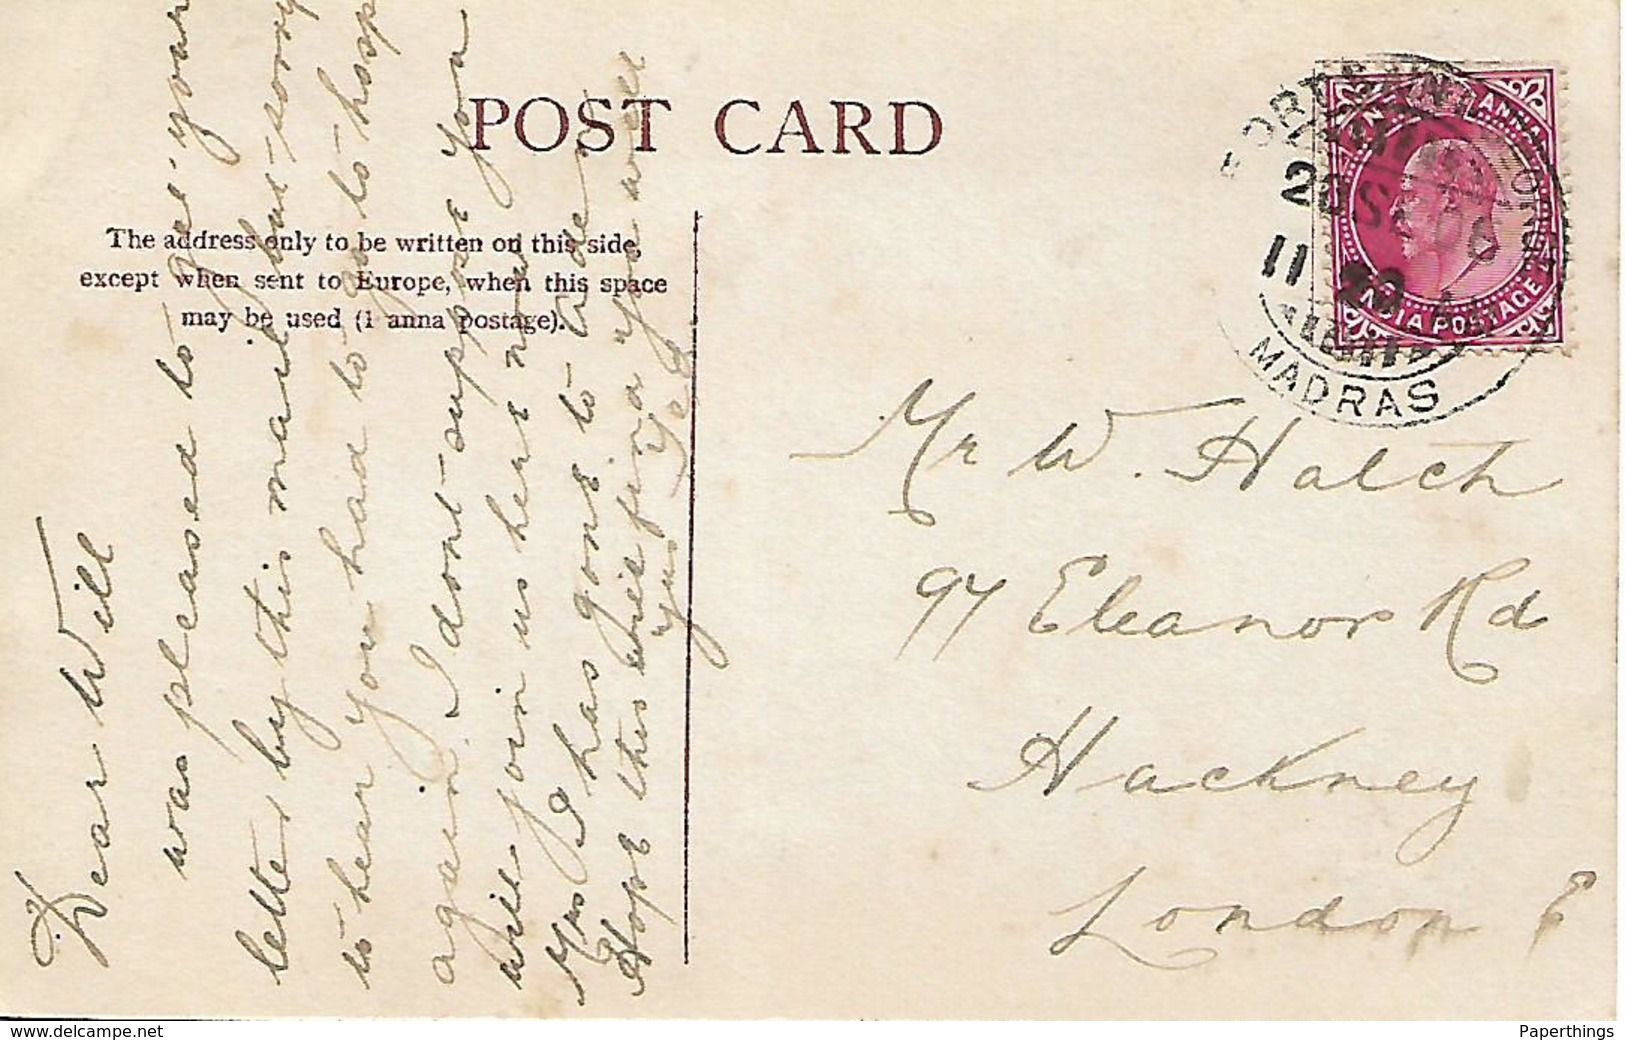 POST CARD
The address only to be written on this side,
except when sent to Europe, when this space
may be used (1 anna postage).
Dear Will
was pleased to get your
letter by this mail, but sorry
to hear you had to go to hosp
again. I dont suppose you
will join us here now
Mrs J has gone to
Hope this will find you well
Yrs
MADRAS
INDIA POSTAGE
ONE ANNA
Mr W. Halch
97 Eleanor Rd
Hackney
London E
www.delcampe.net
Paperthings